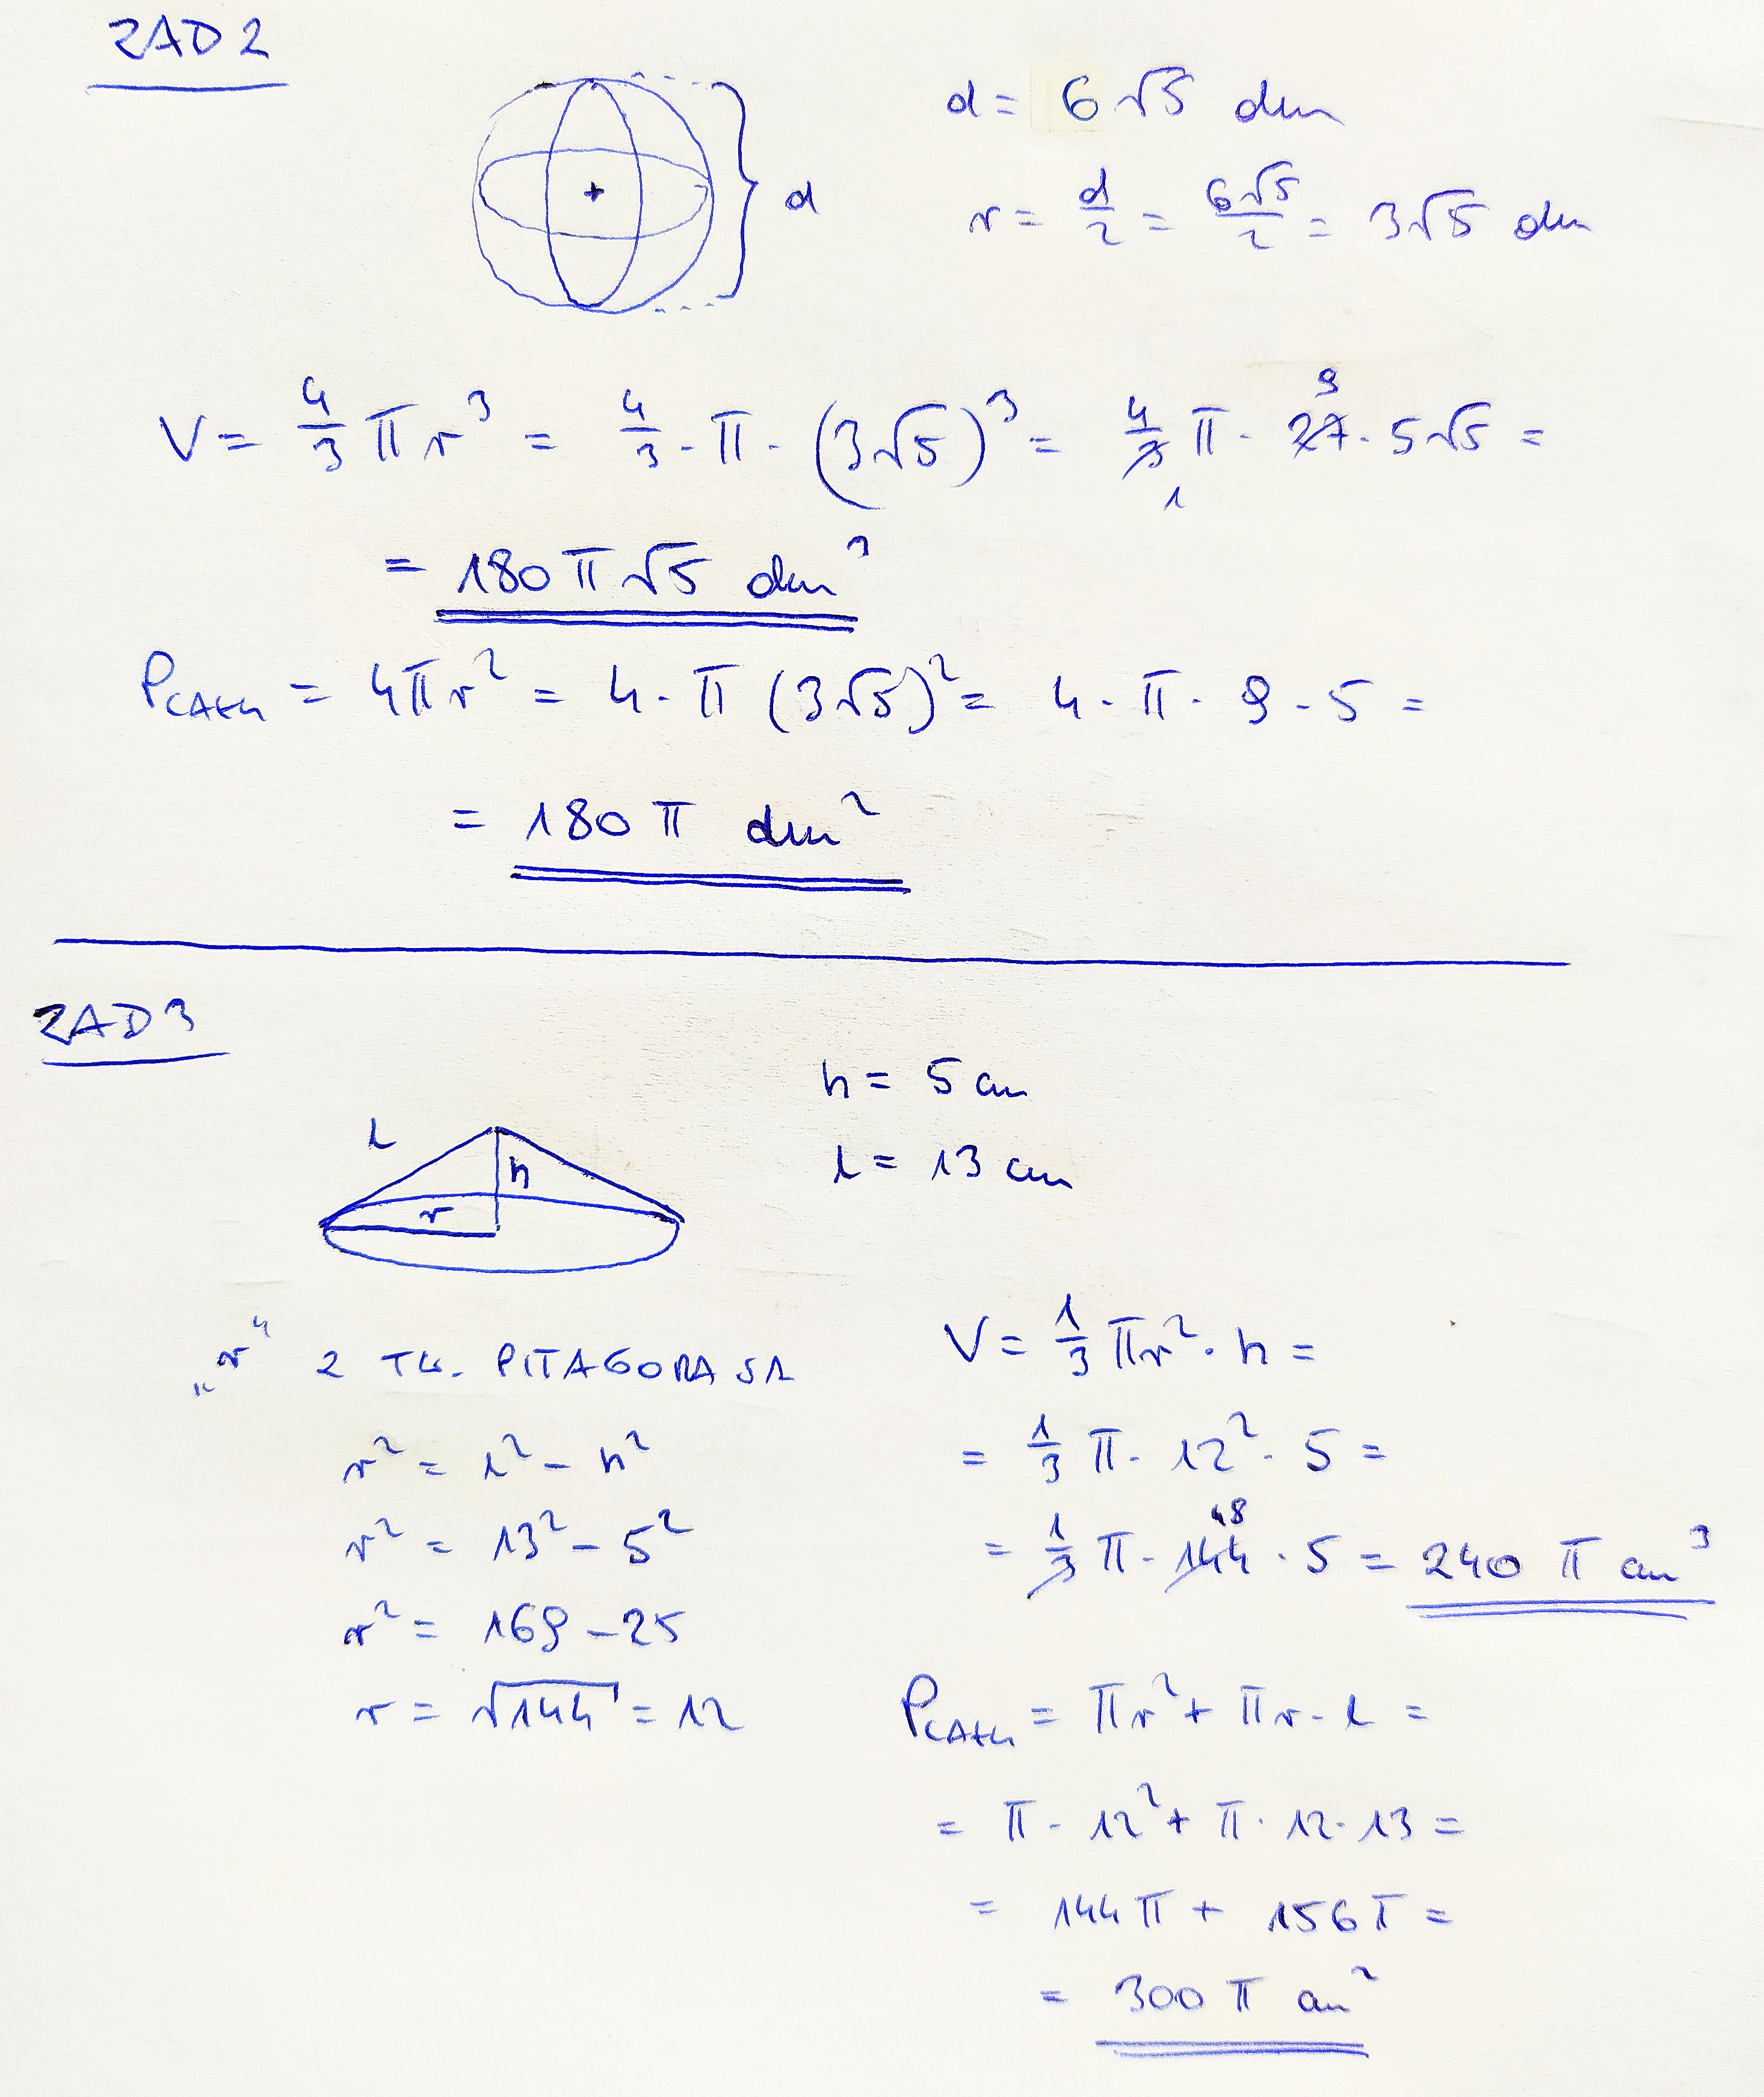 ZAD 2
d = 6√5 dm
r = d/2 = 6√5/2 = 3√5 dm
d
V = 4/3 π r³ = 4/3 · π · (3√5)³ = 4/3 1 π · 27 9 · 5√5 =
= 180 π √5 dm³
PCAŁK = 4πr² = 4 · π (3√5)² = 4 · π · 9 · 5 =
= 180 π dm²
ZAD 3
h = 5 cm
l = 13 cm
l
h
r
„r" Z TW. PITAGORASA
r² = l² - h²
r² = 13² - 5²
r² = 169 - 25
r = √144 = 12
V = 1/3 πr² · h =
= 1/3 π · 12² · 5 =
= 1/3 π · 144 48 · 5 = 240 π cm³
PCAŁK = πr² + πr · l =
= π · 12² + π · 12 · 13 =
= 144 π + 156 π =
= 300 π cm²